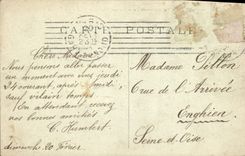 CARTE POSTALE
Chère Madame
Nous pensons aller passer
un moment avec vous jeudi
24 courant, après-midi,
sauf vilain temps
En attendant recevez
nos bonnes amitiés
C. Humbert
dimanche 20 février
Madame Pelton
6 rue de l'Arrivée
Enghien
Seine et Oise